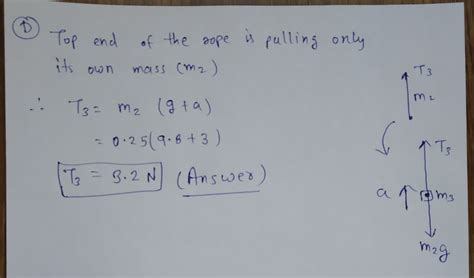 D
Top end of the rope is pulling only
its own mass (m2)
∴ T3 = m2 (g+a)
= 0.25(9.8+3)
T3 = 3.2 N (Answer)
T3
m2
T3
a m3
m2g